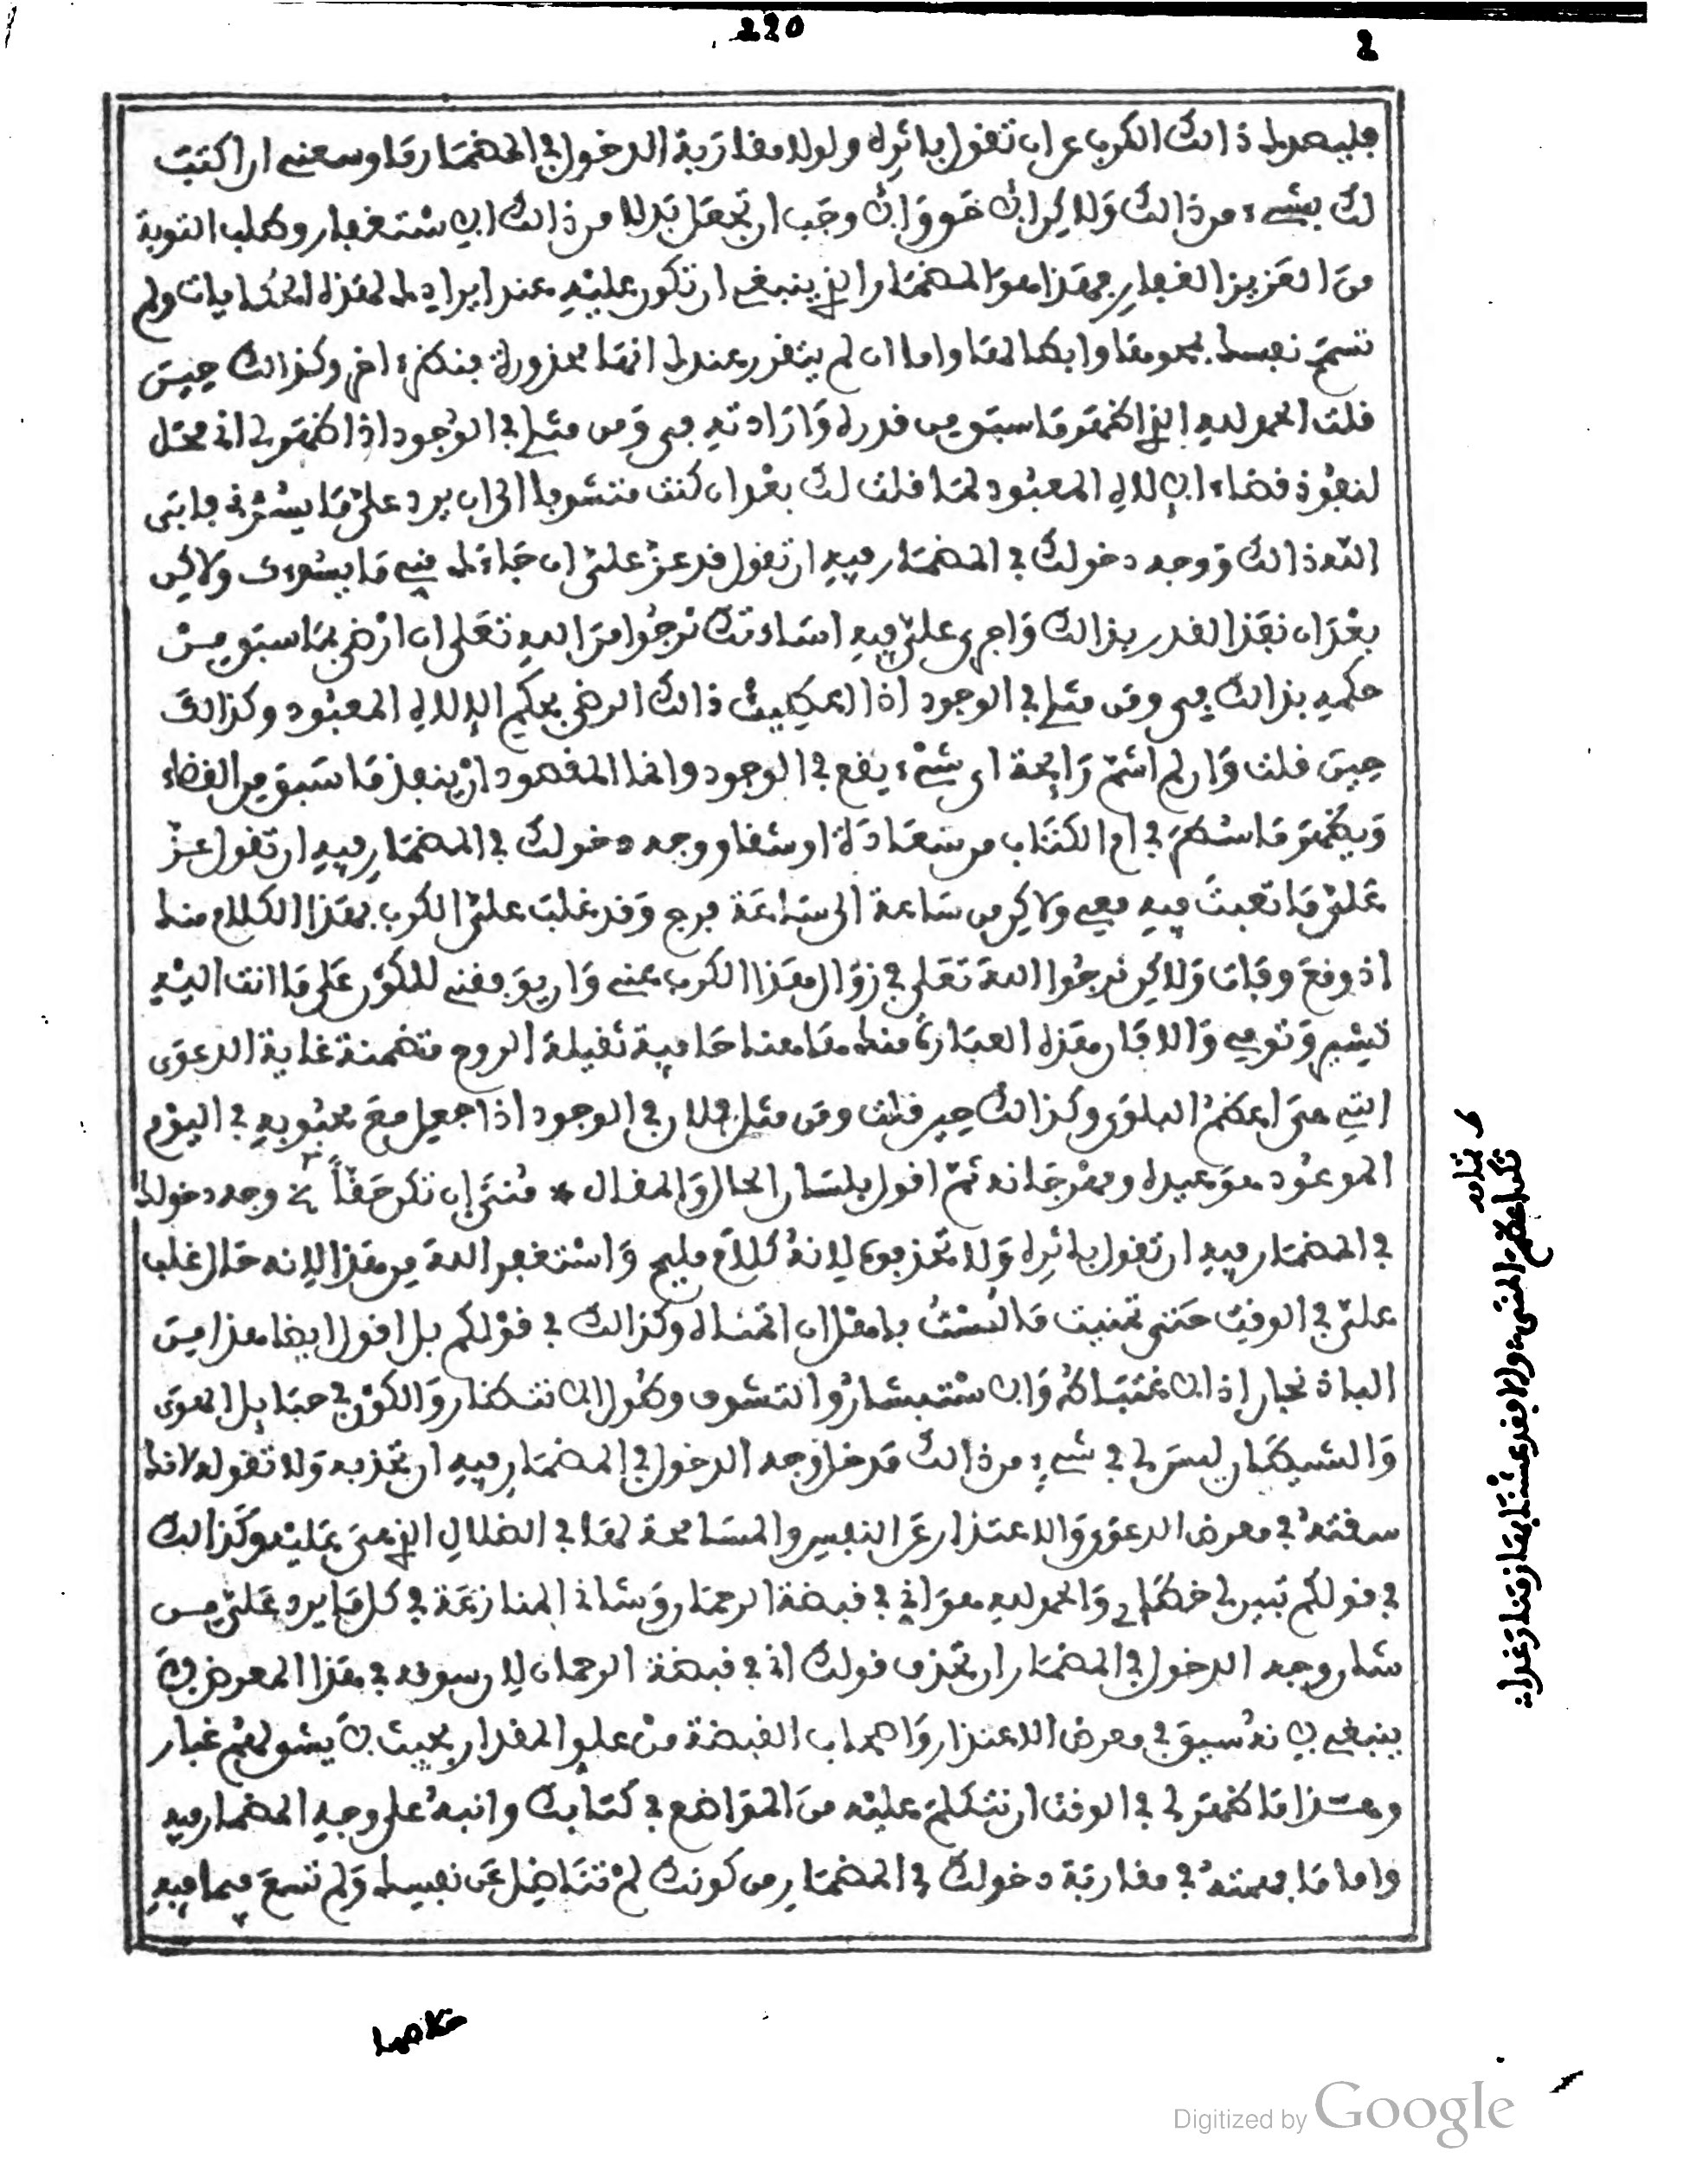 220
2
ذالك الكرب عن ان تقول يا ئره ولولا مقاربة الدخول في المضمار ما وسعني ان اكتب
لك بشيء من ذالك ولاكن الحق حق وان وجب ان تجعل بدلا من ذالك الاستغفار وطلب التوبة
من العزيز الغفار فهذا هو المضمار الذي ينبغي ان تكون عليه عند ايراد هذه الحكايات ولم
تسمح نفسك بمحوها وابطالها واما ان لم يتقرر عندك انها محذورة بنظر اخر وكذالك حين
قلت الحمد لله الذي اظهر ما سبق من قدره وارادته في ومن مثلي في الوجود اذا ظهر لي اني محل
لنفوذ قضاء الالاه المعبود لما قلت لك بعد ان كنت متشوفا الى ان يرد علي ما يسرني فابى
الله ذالك ووجه دخولك في المضمار فيه ان تقول قد عز علي ان جاءك مني ما يسوءك ولاكن
بعد ان نفذ القدر بذالك واجرى علي فيه اساءتك نرجوا من الله تعلى ان ارضى بما سبق من
حكمه بذالك في ومن مثلي في الوجود اذا اعطيت ذالك الرضى بحكم الالاه المعبود وكذالك
حين قلت وان لم اشم رايحة اي شيء يقع في الوجود وانما المقصود ان ينفذ ما سبق من القضاء
ويظهر ما سطر في ام الكتاب من سعادة او شقاء ووجه دخولك في المضمار فيه ان تقول عز
علي ما تعبت فيه معي ولاكن من ساعة الى ساعة فرج وقد غلب علي الكرب بهذا الكلام منك
اذ وقع وفات ولاكن نرجوا الله تعلى في زوال هذا الكرب عني وان يوفقني للكون على ما انت اليه
تشير وتومي والا فان هذه العبارة منك هاهنا حامية ثقيلة الروح متضمنة غاية الدعوى
التي هي اعظم البلوى وكذالك حين قلت ومن مثل فلان في الوجود اذا جعل مع محبوبه في اليوم
الموعود هو عيده ومهرجانه ثم اقول بلسان الحال والمقال * منى ان تكن حقا وجه دخولك
في المضمار فيه ان تقول يا ئره ولا تحذفه لانه كلام مليح واستغفر الله من هذا لانه حال غلب
علي في الوقت حتى تمنيت ما لست باهل ان اتمناه وكذالك في قولكم بل اقول ايضا هذا من
الباذنجان اذ الاغتباط والاستبشار والتشوف وطول الانتظار والكون في حبايل الهوى
والشيطان ليس لي في شيء من ذالك مدخل وجه الدخول في المضمار فيه ان تحذفه ولا تقوله لانك
سقته في معرض الدعوى والاعتذار عن النفس والمسامحة لها في الضلال الذي هي عليه وكذالك
في قولكم تبين لي خطاي والحمد لله هو اني في قبضة الرحمان وشاني المنازعة في كل ما يرد علي من
شان وجه الدخول في المضمار ان تحذف قولك اني في قبضة الرحمان لان سوقه في هذا المعرض لا
ينبغي لانه سيق في معرض الاعتذار واصحاب القبضة من علو المقدار بحيث لا يشق لهم غبار
وهذا ما ظهر لي في الوقت ان نتكلم عليه من المواضع في كتابك وانبه على وجه المضمار فيه
واما ما فهمته في مقاربة دخولك في المضمار من كونك لم تناضل عن نفسك ولم تسع فيما فيه
تكن اعظم المنى * والا فقد عشنا بها زمنا رغدا
خلاصها
Digitized by Google